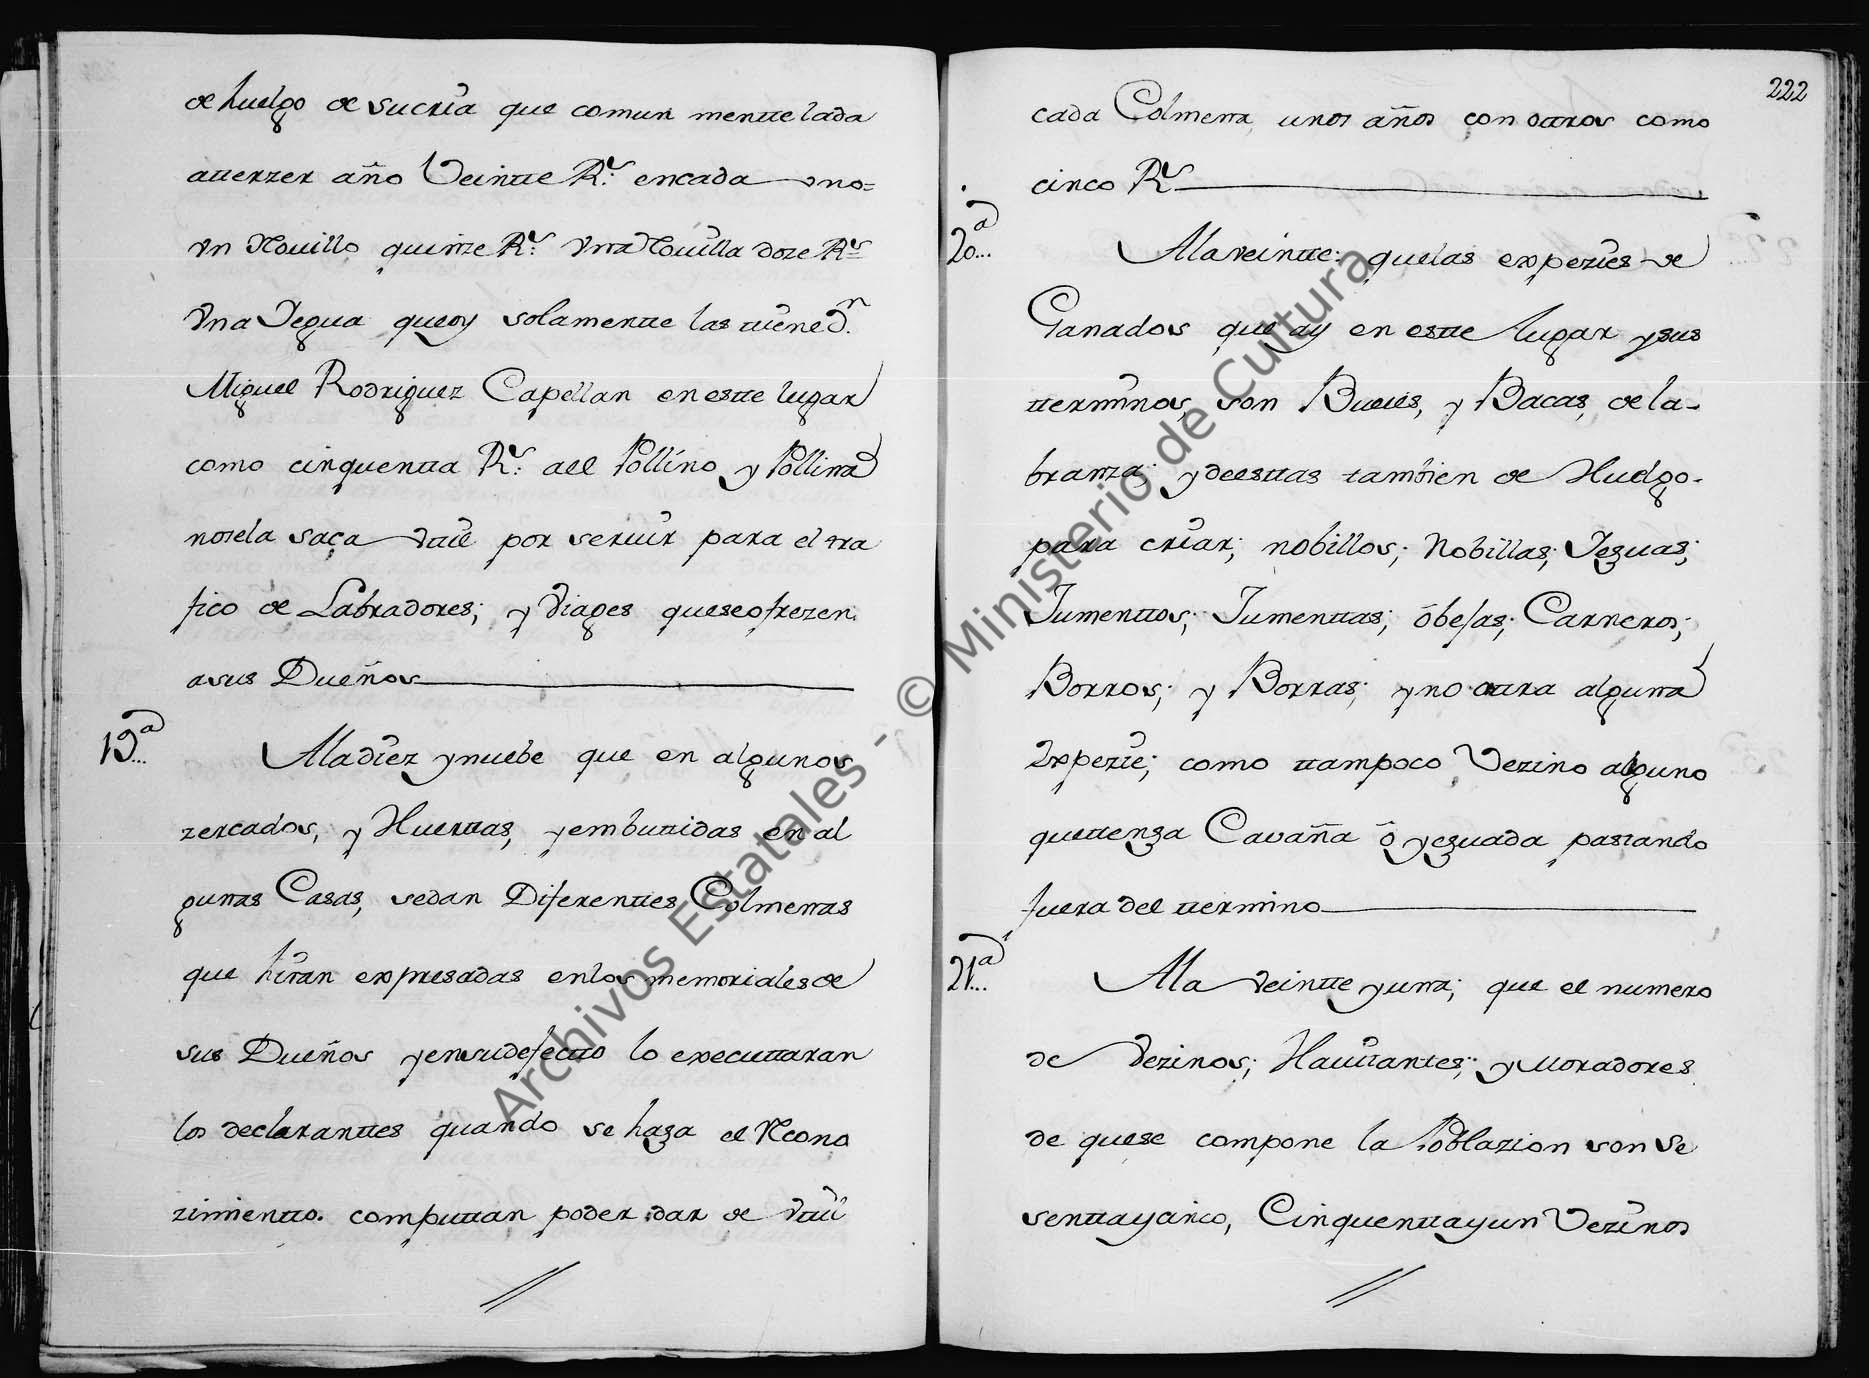 de huelgo de su cria que comun mentte la da
a tterzer año Veintte R.s en cada vno=
vn Nouillo quinze R.s vna Nouilla doze R.s
vna Yegua que oy solamentte las ttiene D.n
Miguel Rodriguez Capellan en estte lugar
como cinquentta R.s a el Pollino y Pollina
no se la saca vttil por seruir para el tra
fico de Labradores; y Viages que se ofrezen
a sus Dueños
19.a...
A la diez y nuebe que en algunos
zercados, y Huerttas, y embuttidas en al
gunas Casas, se dan Diferenttes Colmenas
que hiran expresadas en los memoriales de
sus Dueños y en su defectto lo executtaran
los declaranttes quando se haga el Recono
zimientto. computtan poder dar de vttil
222
cada Colmena unos años con ottros como
cinco R.s
20.a...
A la veintte: que las expezies de
Ganados que ay en estte lugar y sus
tterminos, son Bueies, y Bacas, de la-
branza; y de esttas tambien de Huelgo-
para criar; nobillos; Nobillas; Yeguas;
Jumenttos; Jumenttas; óbejas; Carneros;
Borros; y Borras; y no ottra alguna
Expezie; como ttampoco Vezino alguno
que ttenga Cavaña ó yeguada pastando
fuera del ttermino
21.a...
A la veintte y una; que el numero
de Vezinos; Hauitantes; y Moradores
de que se compone la Poblazion son se
sentta y cinco, Cinquentta y un Vezinos
Archivos Estatales - © Ministerio de Cultura